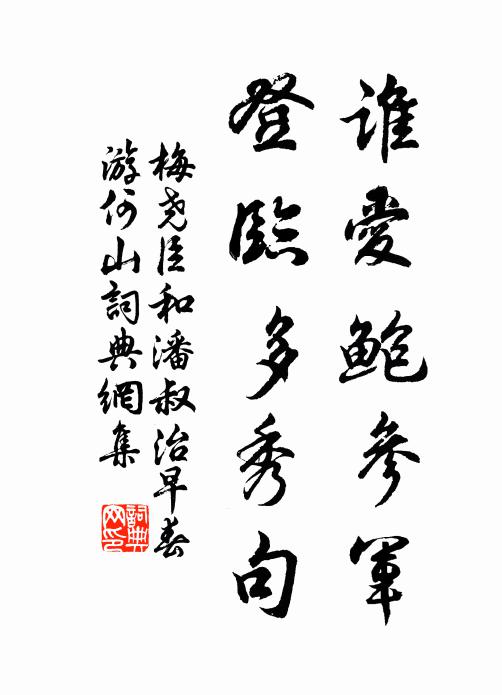 誰愛鮑參軍
登臨多秀句
梅堯臣和潘叔治早春
游何山詞典網集
詞典網印